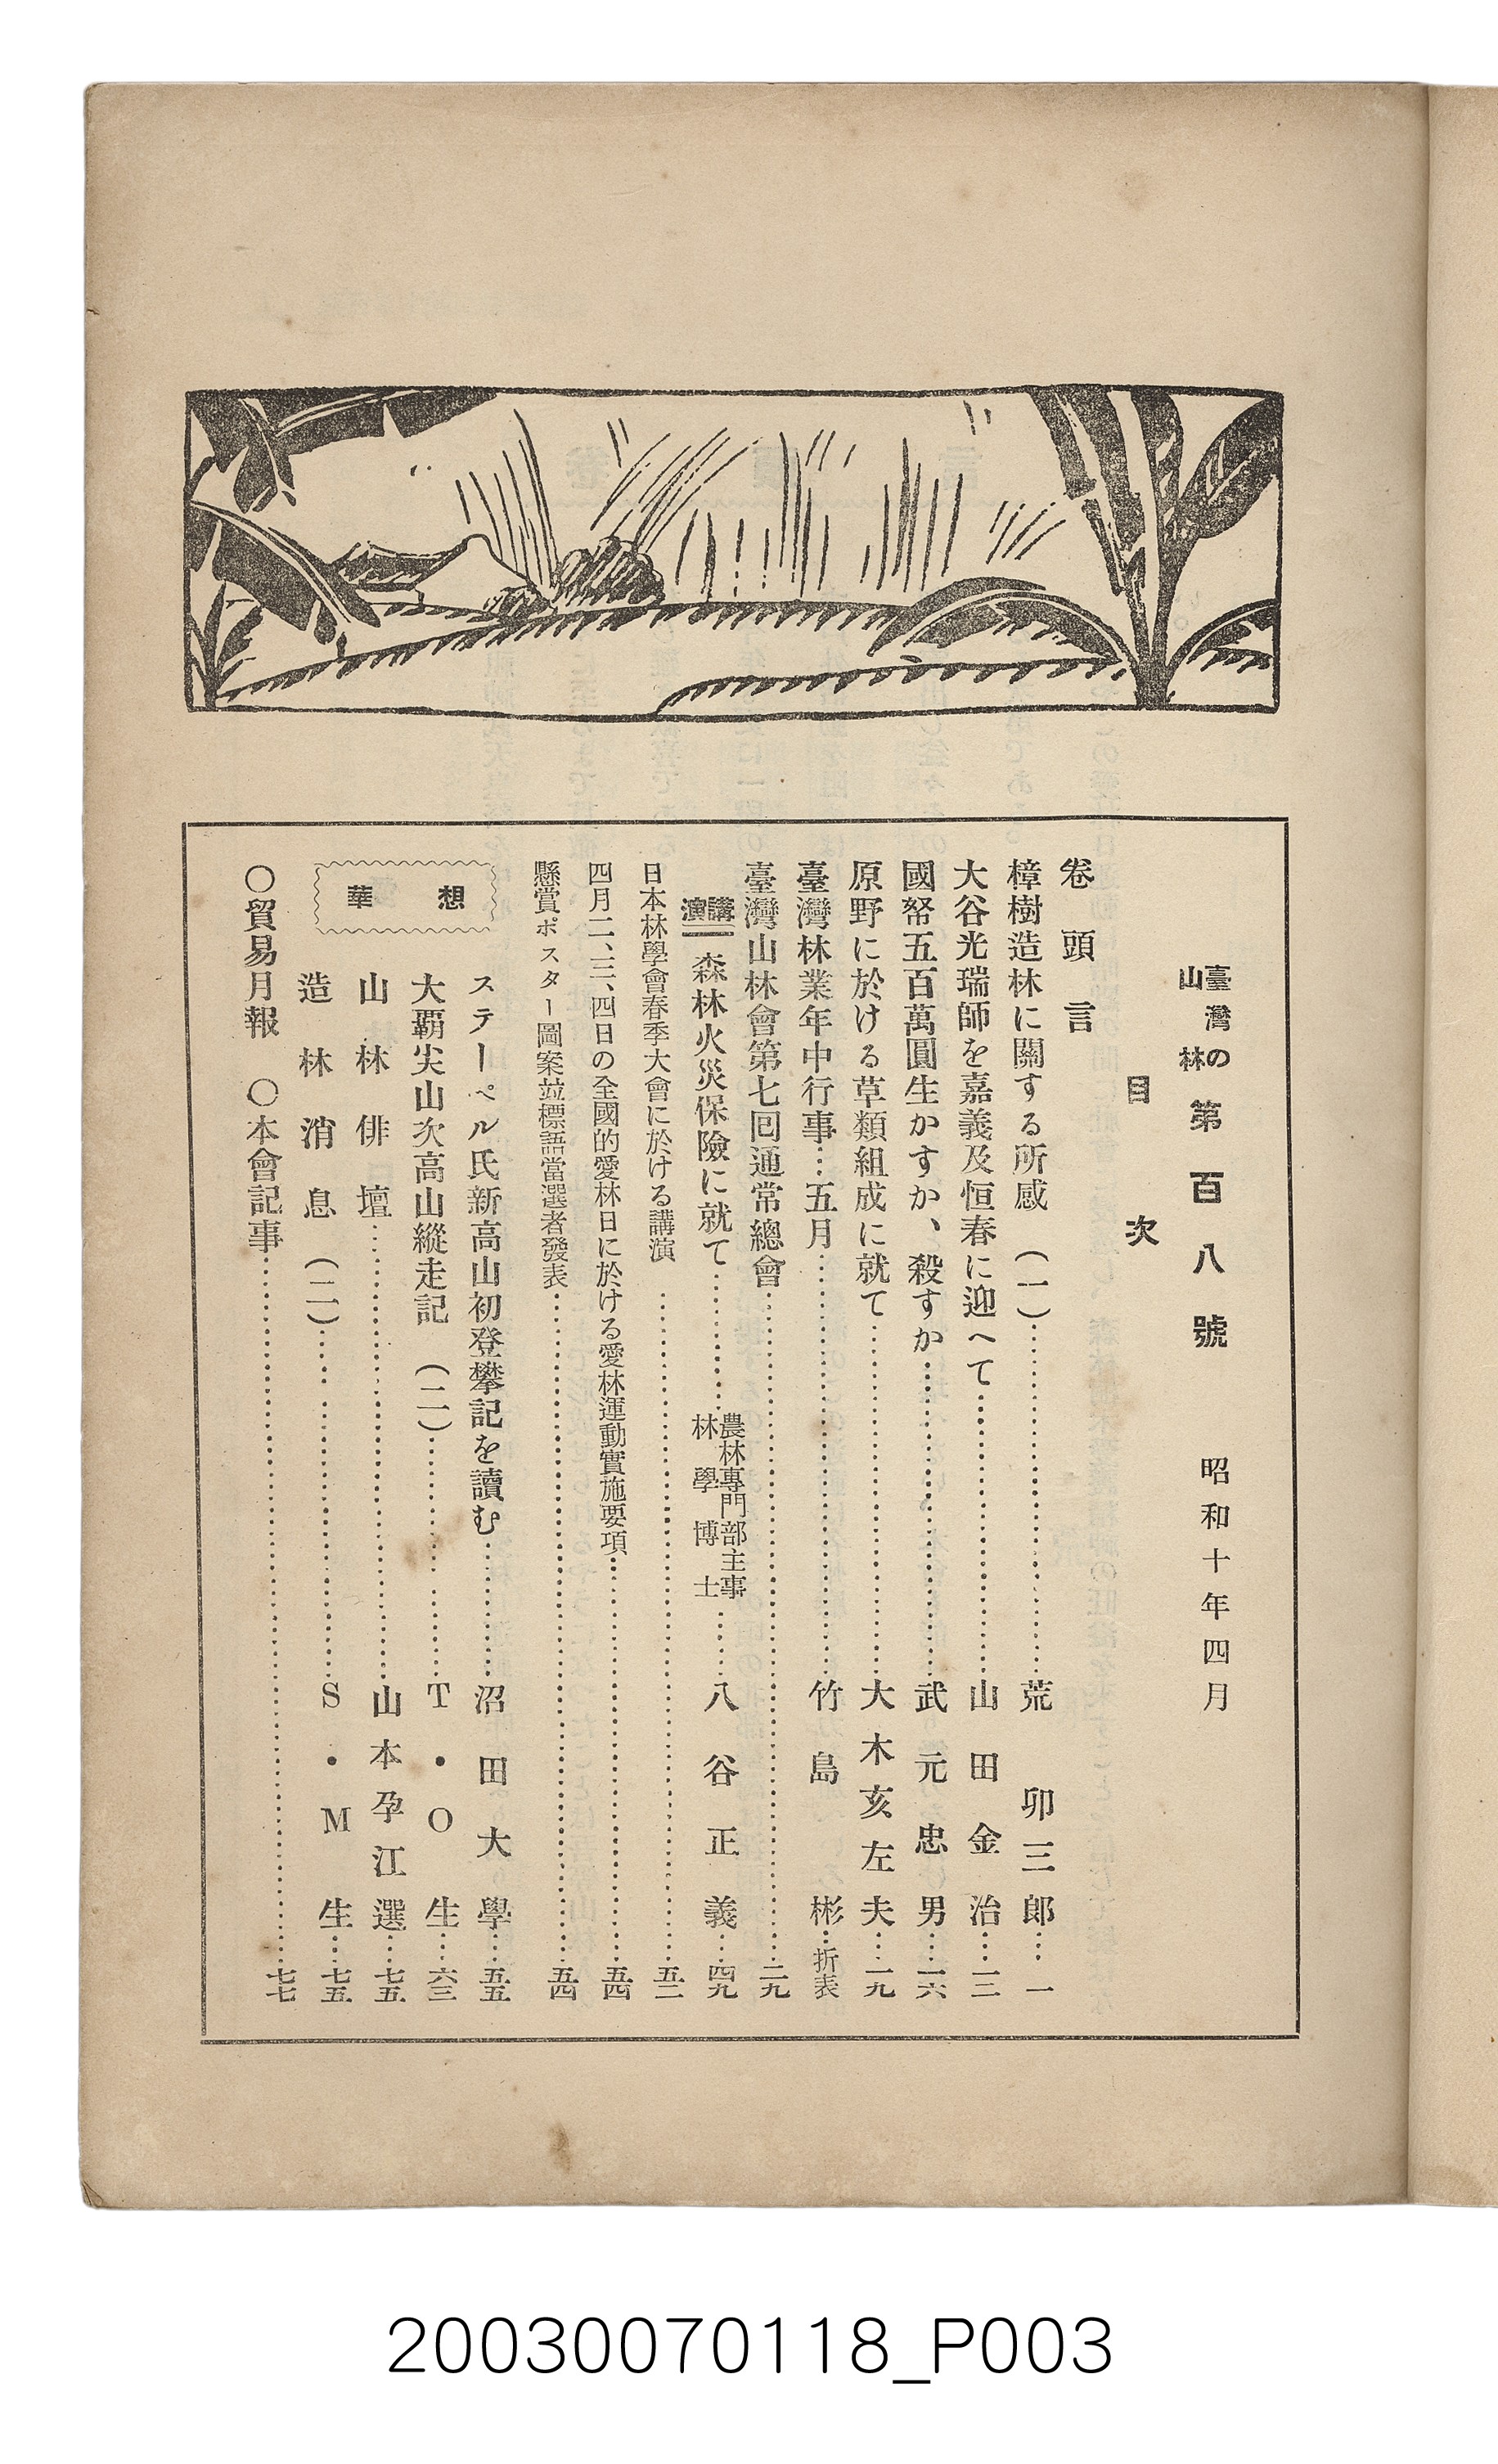 臺灣の山林 第百八號 昭和十年四月
目次
卷頭言
樟樹造林に關する所感 (一)……荒卯三郎…一
大谷光瑞師を嘉義及恒春に迎へて……山田金治…一二
國帑五百萬圓生かすか、殺すか……武元忠男…一六
原野に於ける草類組成に就て……大木亥左夫…一九
臺灣林業年中行事…五月……竹島彬…折表
臺灣山林會第七回通常總會……二九
講演 森林火災保險に就て……農林專門部主事 林學博士……八谷正義…四九
日本林學會春季大會に於ける講演……五二
四月二、三、四日の全國的愛林日に於ける愛林運動實施要項……五四
懸賞ポスター圖案並標語當選者發表……五四
想華
ステーペル氏新高山初登攀記を讀む……沼田大學…五五
大覇尖山次高山縱走記 (二)……T・O生…六三
山林俳壇……山本孕江選…七五
造林消息 (二)……S・M生…七五
〇貿易月報 〇本會記事……七七
20030070118_P003